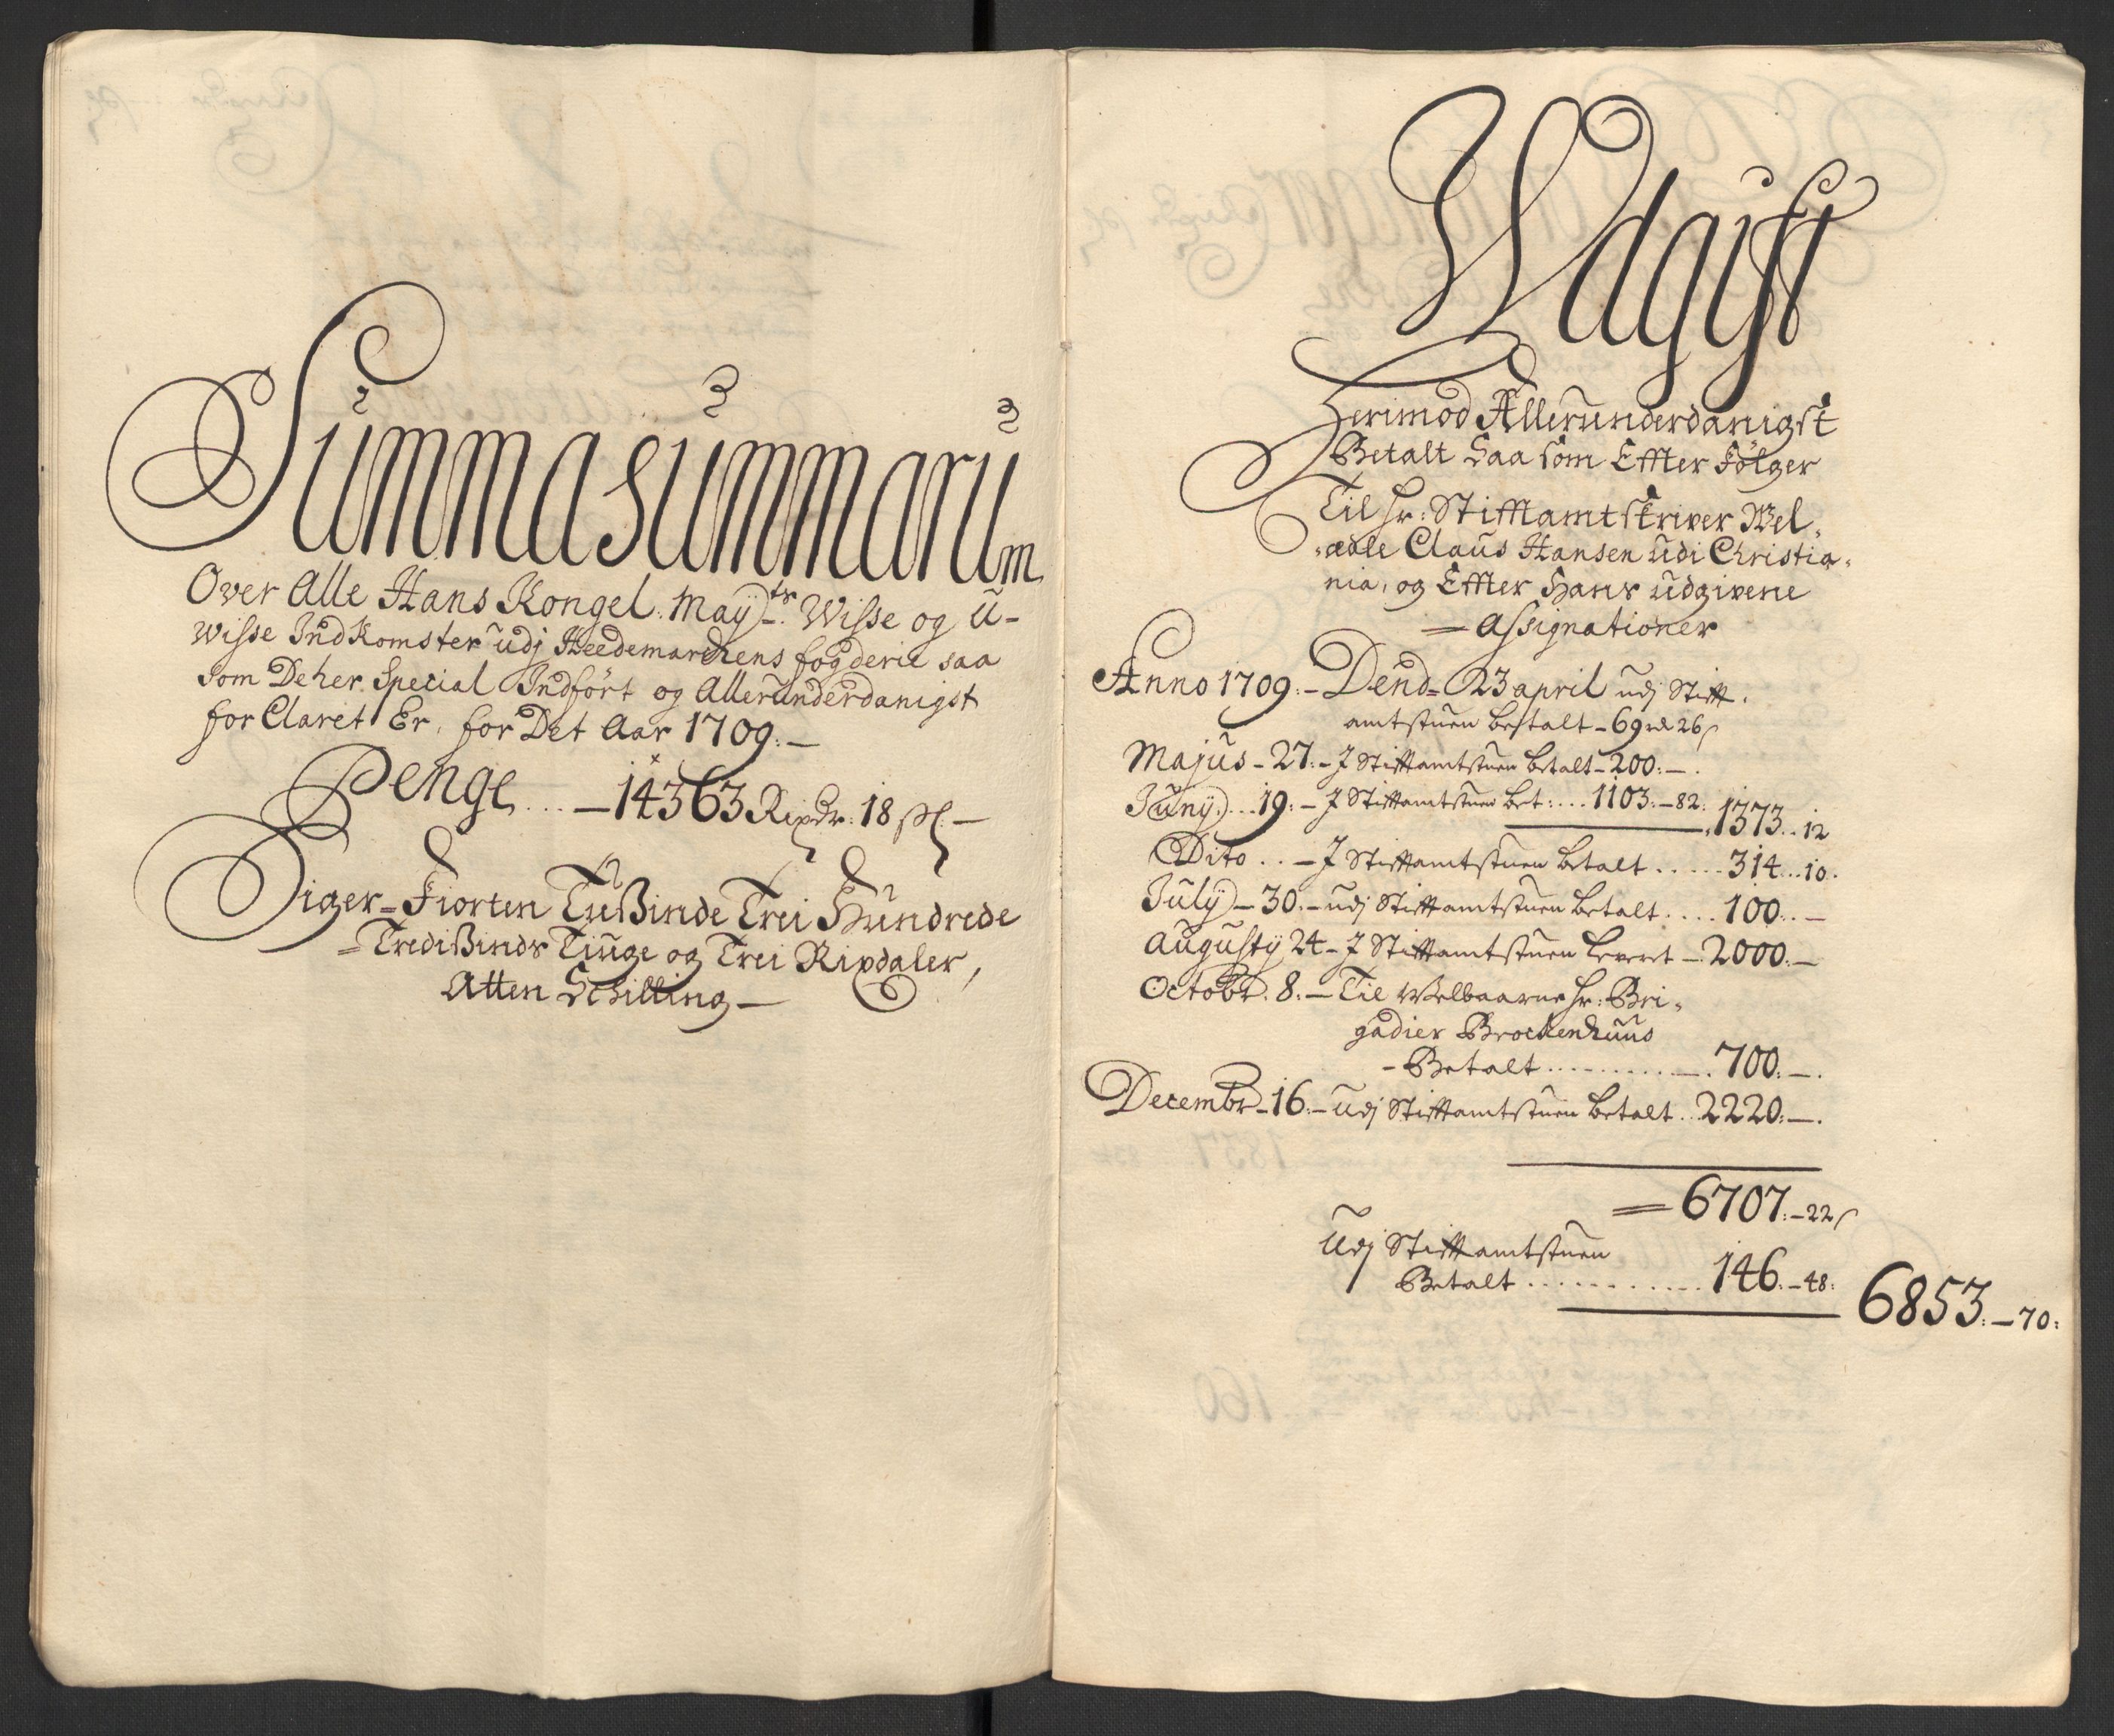 Summa summarum
Over Alle Hans Kongel: Maÿts: Wisse og U-
wisse Ind Komster udj Heedemarchens fogderie saa
som De her Special Indført og Allerunderdanigst
for Claret Er, for Det Aar 1709:-
Penge ... - 14363 Rixdr: 18 ß: -
Siger = Fiorten Tußinde Trei Hundrede
= Tredißinds Tiuge og Trei Rixdaler,
Atten Schilling -
Udgift
Herimod Allerunderdanigst
Betalt Saa som Effter Følger
Til Hr: Stifftamtskriver Wel-
ædle Claus Hansen udi Christia-
nia, og Effter Hans udgivene
= Assignationer
Anno 1709:- Dend= 23 april udj Stifft-
amtstuen betalt - 69 rd 26 ß
Majus - 27:- J Stifftamtstuen betalt - 200:-.
Junÿ ... 19:- J Stifftamtstuen bet: ... 1103:- 82: 1373 .. 12
Dito .. - J Stifftamtstuen betalt ..... 314 .. 10.
Julÿ - 30.- udj Stifftamtstuen betalt .... 100:. -
Augustÿ 24 - J Stifftamtstuen leveret - 2000:-
Octobr. 8:- Til Welbaarne Hr: Bri-
gadier Brockenhuus
- Betalt .......... 700:-.
Decembr - 16:- Udj Stifftamtstuen betalt .. 2220:-.
= 6707:- 22 ß
Udj Stifftamtstuen
Betalt ........... 146:- 48:
6853:- 70: